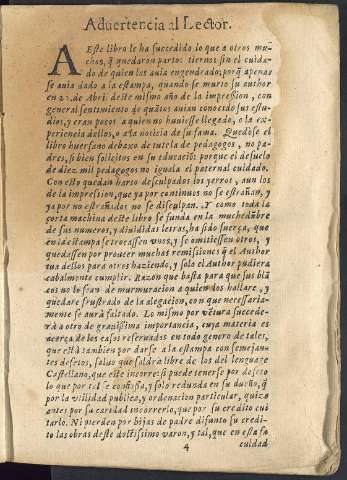 Aduertencia al Lector.
A Este libro le ha succedido lo que a otros mu-
chos, q̃ quedaron partos tiernos sin el cuida-
do de quien los auia engendrado; porq̃ apenas
se auia dado a la estampa, quando se murio su author
en 21. de Abril deste mismo año de la impression, con
general sentimiento de quãtos auian conocido sus estu-
dios, y eran pocos a quien no huuiesse llegado, o la ex-
periencia dellos, o alga noticia de su fama. Quedòse el
libro huerfano debaxo de tutela de pedagogos, no pa-
dres, si bien solicitos en su educaciõ: porque el desuelo
de diez mil pedagogos no iguala el paternal cuidado.
Con esto quedan harto desculpados los yerros, aun los
de la impression, que ya por continuos no se estrañan, y
ya por no estrañados no se disculpan. Y como toda la
corta machina deste libro se funda en la muchedũbre
de sus numeros, y diuididas letras, ha sido fuerça, que
en la estampa se trocassen vnos, y se omitiessen otros, y
quedassen por proueer muchas remisiones q̃ el Author
yua dellos para otros haziendo, y solo el Author pudiera
cabalmente cumplir. Razon que basta para que sus blã
cos no lo sean de murmuracion a quien dos hallare, y
quedare frustrado de la alegacion, con que necessaria-
mente se aurà faltado. Lo mismo por vẽtura succede-
rà a otro de grauissima importancia, cuya materia es
acerca de los casos reseruados en todo genero de tales,
que està tambien por darse a la estampa con semejan-
tes defetos, saluo que saldra libre de los del lenguage
Castellano, que este incorrersi puede tenerse por defeto
lo que por tal se confiessa, y solo redunda en su dueño, q̃
por la vtilidad publica, y ordenacion particular, quiso
antes por su caridad incorrerlo, que por su credito eui
tarlo. Ni pierden por hijas de padre difunto su credi-
to las obras deste doctissimo varon, y tal, que en esta fa
4 cultad